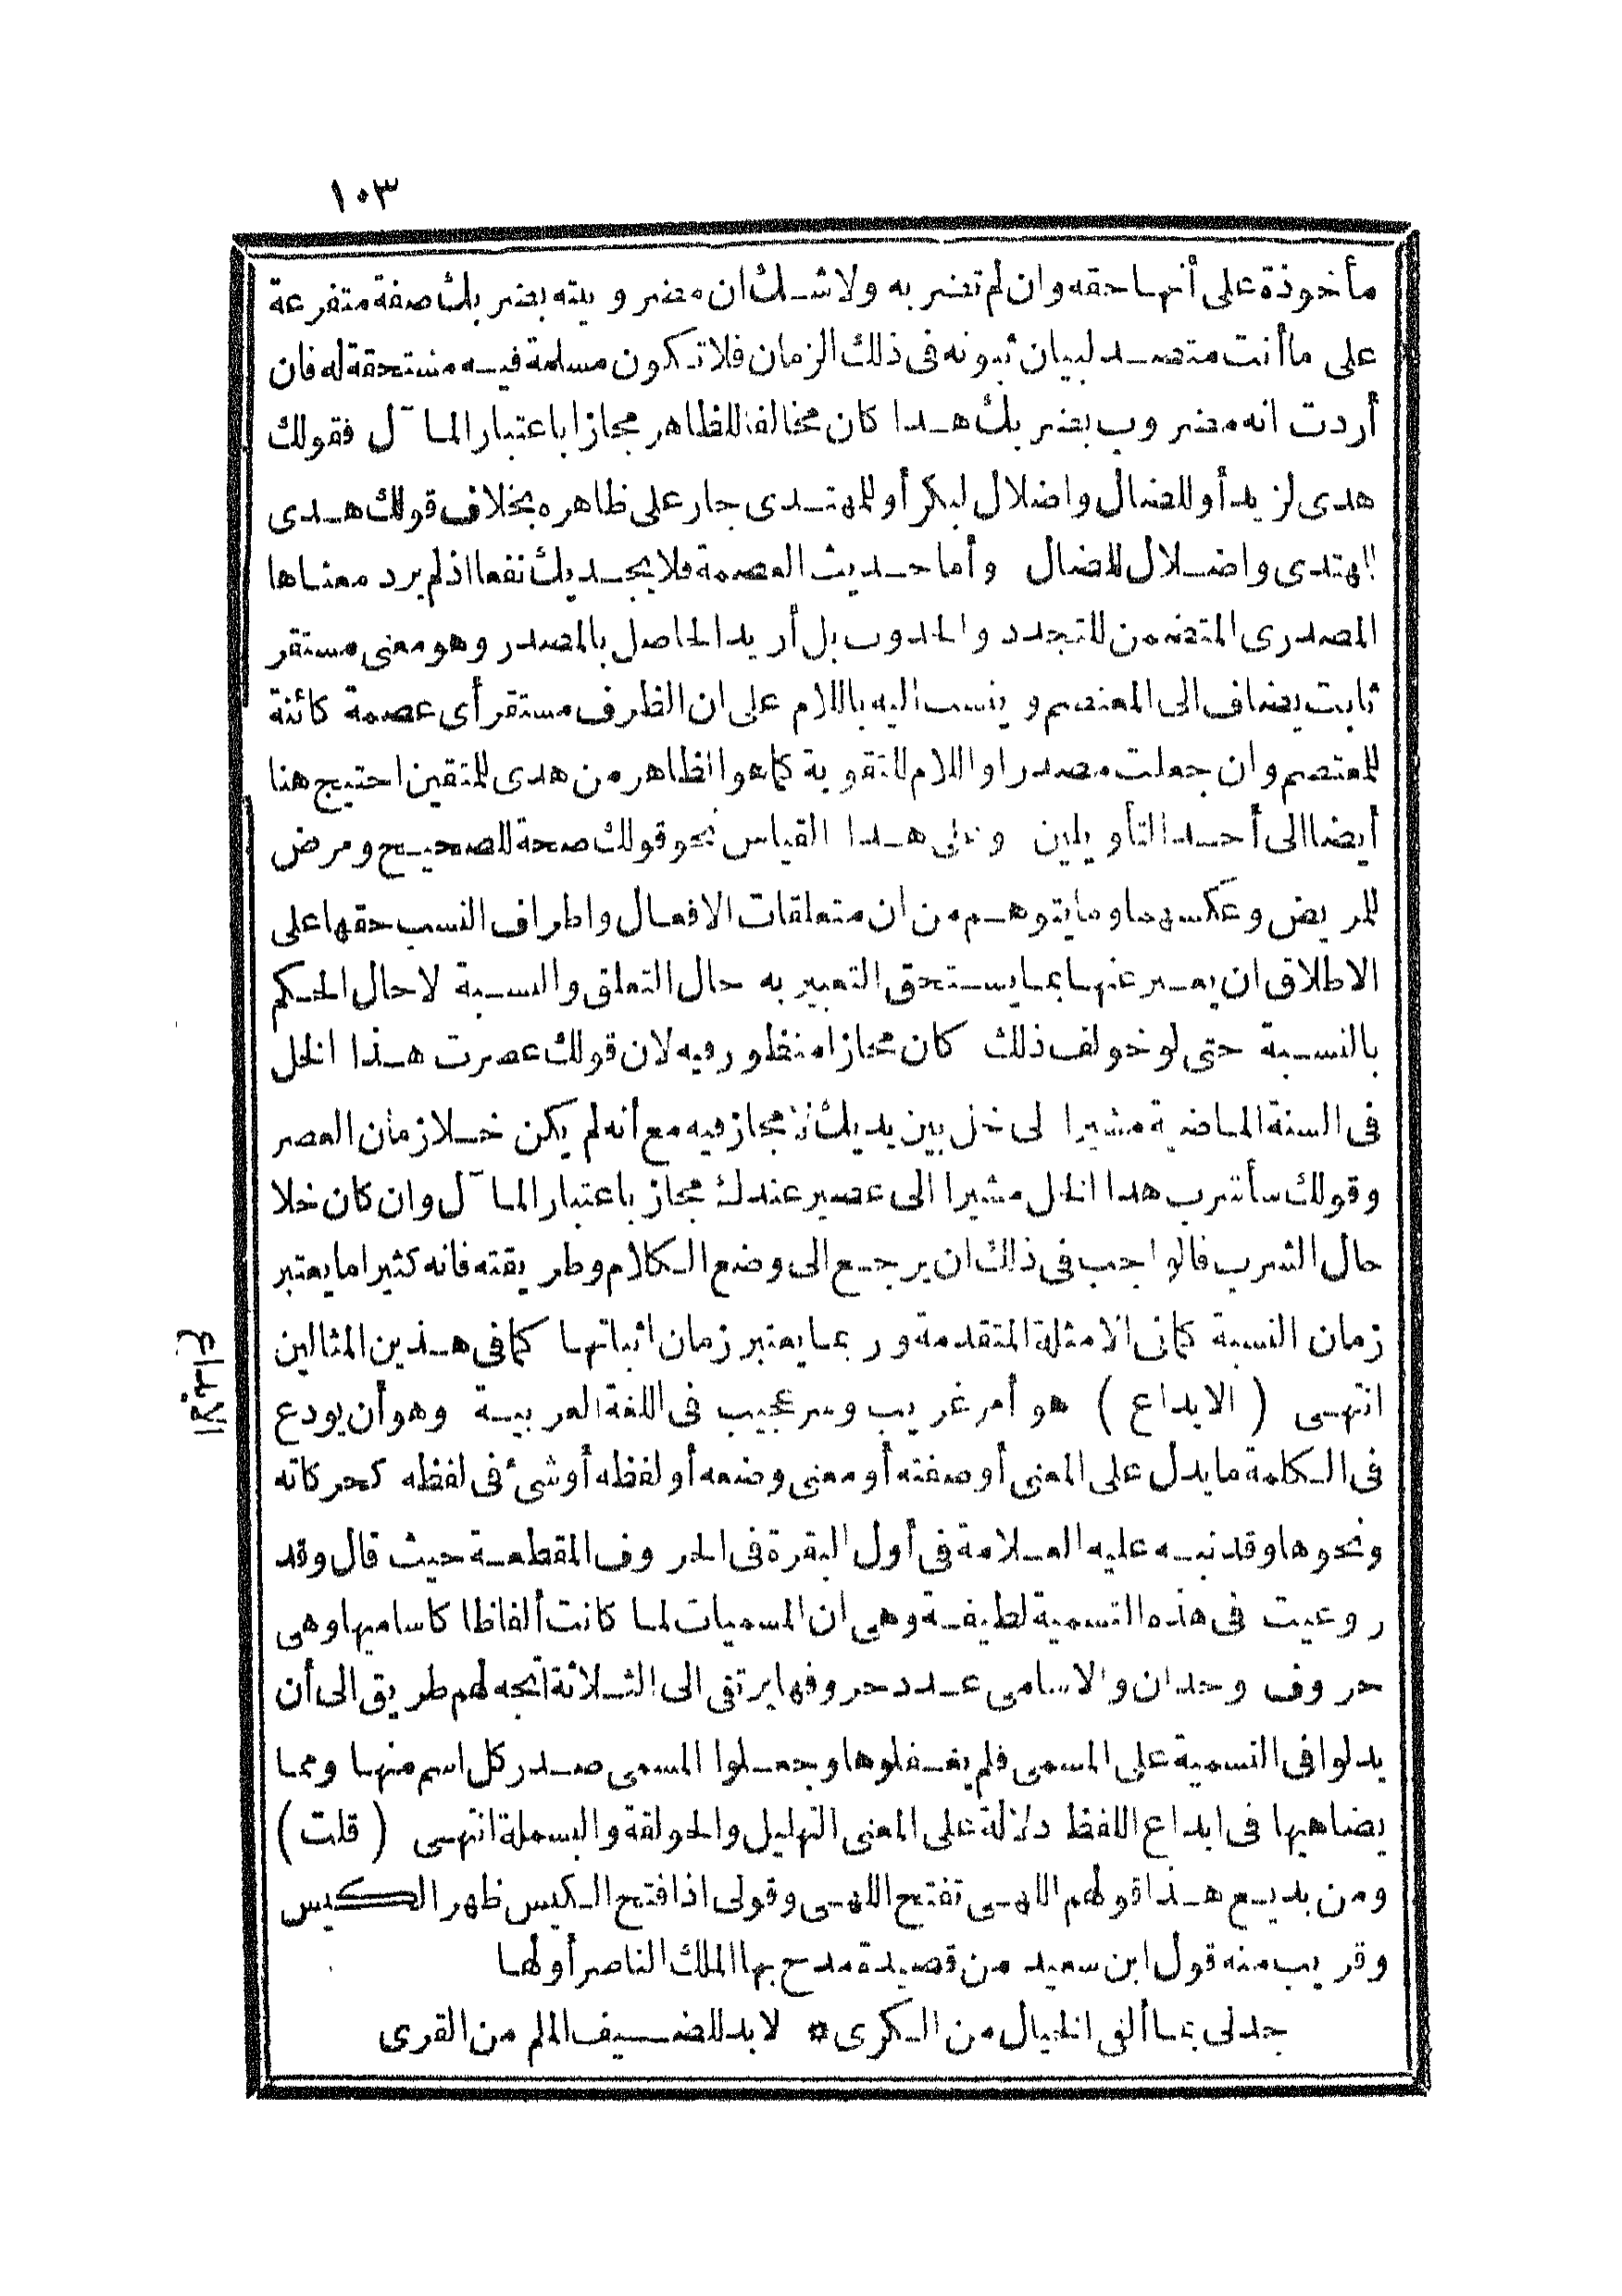 ١٠٣
مأخوذة على أنها حقه وان لم تضربه ولاشك ان مضروبيته بضربك صفة متفرعة
على ما أنت متصد لبيان ثبوته فى ذلك الزمان فلا تكون مسلمة فيه مستحقة له فان
أردت انه مضروب بضربك هذا كان مخالفا للظاهر مجازا باعتبار المآل فقولك
هدى لزيد أو للضال واضلال لبكر أو للمهتدى جار على ظاهره بخلاف قولك هدى
للمهتدى واضلال للضال وأما حديث العصمة فلا يجديك نفعا اذ لم يرد معناها
المصدرى المتضمن للتجدد والحدوث بل أريد الحاصل بالمصدر وهو معنى مستقر
ثابت يضاف الى المعتصم وينسب اليه باللام على ان الظرف مستقر أى عصمة كائنة
للمعتصم وان جعلت مصدرا واللام للتقوية كما هو الظاهر من هدى للمتقين احتيج هنا
أيضا الى أحد التأويلين وعلى هذا القياس نحو قولك صحة للصحيح ومرض
للمريض وعكسهما وما يتوهم من ان متعلقات الافعال واطراف النسب حقها على
الاطلاق ان يعبر عنها بما يستحق التعبير به حال التعلق والنسبة لا حال الحكم
بالنسبة حتى لو خولف ذلك كان مجازا منظور فيه لان قولك عصرت هذا الخل
فى السنة الماضية مشيرا لى خل بين يديك لا مجاز فيه مع أنه لم يكن خلا زمان العصر
وقولك سأشرب هذا الخل مشيرا الى عصير عندك مجاز باعتبار المآل وان كان خلا
حال الشرب فالواجب فى ذلك ان يرجع الى وضع الكلام وطريقته فانه كثيرا ما يعتبر
زمان النسبة كما فى الامثلة المتقدمة وربما يعتبر زمان اثباتها كما فى هذين المثالين
الابداع
انتهى ( الابداع ) هو أمر غريب وسر عجيب فى اللغة العربية وهو أن يودع
فى الكلمة ما يدل على المعنى أو صفته أو معنى وضعه أو لفظه أو شئ فى لفظه كحركاته
ونحوها وقد نبه عليه العلامة فى أول البقرة فى الحروف المقطعة حيث قال وقد
روعيت فى هذه التسمية لطيفة وهى ان المسميات لما كانت ألفاظا كاساميها وهى
حروف وحدان والاسامى عدد حروفها يرتقى الى الثلاثة أتجه لهم طريق الى أن
يدلوا فى التسمية على المسمى فلم يغفلوها وجعلوا المسمى صدر كل اسم منها ومما
يضاهيها فى ايداع اللفظ دلالة على المعنى التهليل والحولقة والبسملة انتهى ( قلت )
ومن بديع هذا قولهم اللهى تفتح اللهى وقولى اذا فتح الكيس ظهر الكيس
وقريب منه قول ابن سعيد من قصيدة مدح بها الملك الناصر أولها
جد لى بما ألقى الخيال من الكرى * لا بد للضيف الملم من القرى